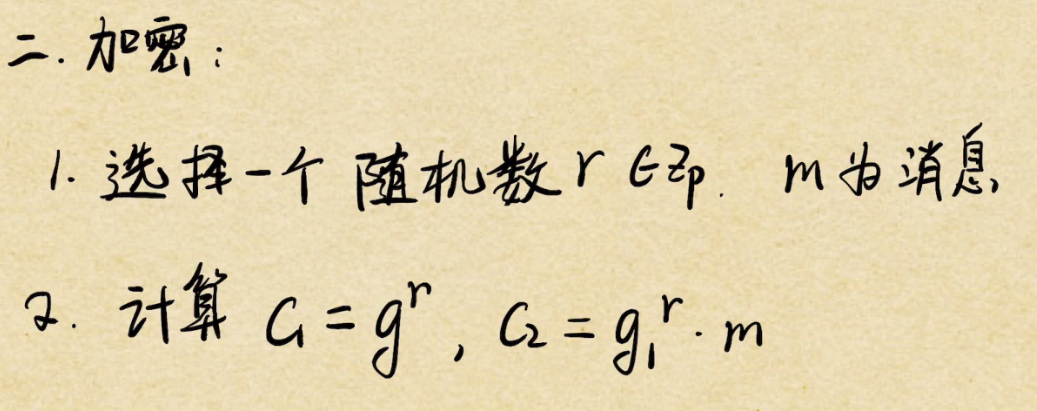 二. 加密:
1. 选择一个随机数 r ∈ Zp. m为消息
2. 计算 C₁ = gʳ, C₂ = g₁ʳ · m